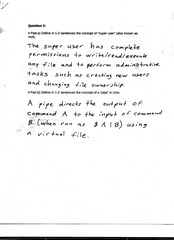 Question 2:
4 Pts(a) Define in 1-2 sentences the concept of "super user" (also known as
root).
The super user has complete
permissions to write/read/execute
any file and to perform administrative
tasks such as creating new users
and changing file ownership.
4 Pts(b) Define in 1-2 sentences the concept of a "pipe" in Unix.
A pipe directs the output of
command A to the input of command
B (when run as $ A | B) using
a virtual file.